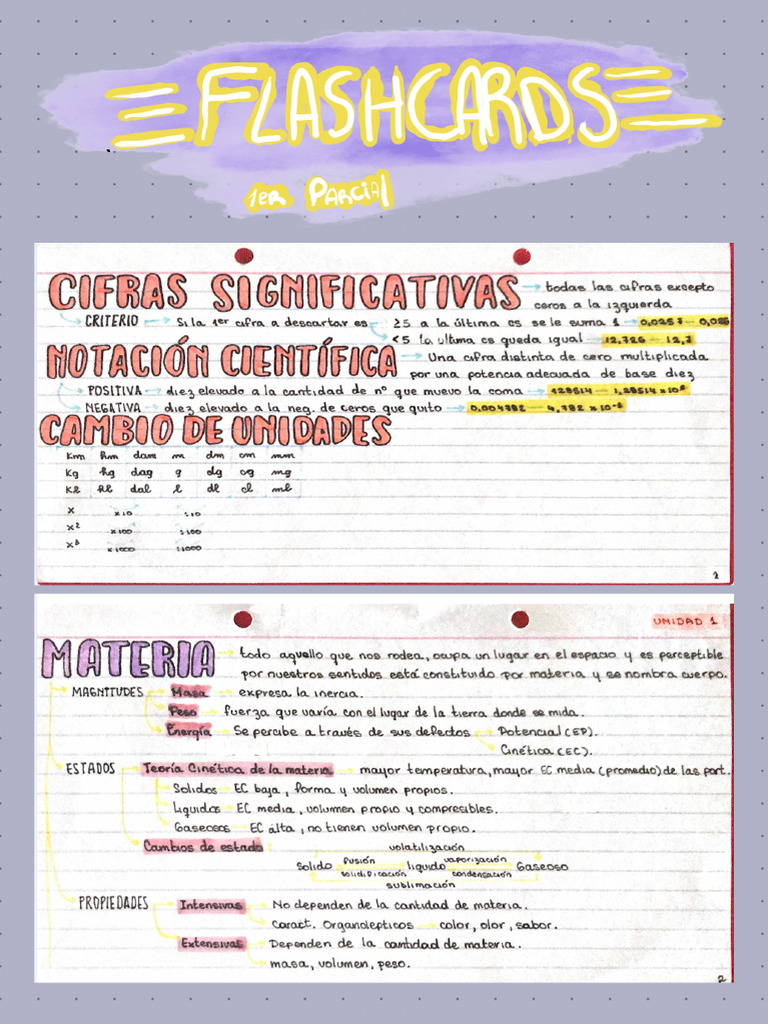 FLASHCARDS
1er Parcial
CIFRAS SIGNIFICATIVAS → todas las cifras excepto
ceros a la izquierda
CRITERIO → Si la 1er cifra a descartar es → ≥5 a la última cs se le suma 1 → 0,0257 — 0,026
<5 la última cs queda igual — 12,726 — 12,7
NOTACIÓN CIENTÍFICA → Una cifra distinta de cero multiplicada
por una potencia adecuada de base diez
POSITIVA → diez elevado a la cantidad de nº que muevo la coma → 128514 — 1,28514 x10
NEGATIVA → diez elevado a la neg. de ceros que quito → 0,004782 — 4,782 x10
CAMBIO DE UNIDADES
Km Hm dam m dm cm mm
Kg hg dag g dg cg mg
Kl hl dal l dl cl ml
x x10 :10
x² x100 :100
x³ x1000 :1000
1
UNIDAD 1
MATERIA → todo aquello que nos rodea, ocupa un lugar en el espacio y es perceptible
por nuestros sentidos está constituido por materia y se nombra cuerpo.
MAGNITUDES → Masa → expresa la inercia.
Peso → fuerza que varía con el lugar de la tierra donde se mida.
Energía → Se percibe a través de sus defectos → Potencial (EP).
Cinética (EC).
ESTADOS → Teoría Cinética de la materia → mayor temperatura, mayor EC media (promedio) de las part.
Solidos → EC baja, forma y volumen propios.
Liquidos → EC media, volumen propio y compresibles.
Gaseosos → EC alta, no tienen volumen propio.
Cambios de estado:
volatilización
Solido fusión liquido vaporización Gaseoso
solidificación condensación
sublimación
PROPIEDADES → Intensivas → No dependen de la cantidad de materia.
Caract. Organolepticos → color, olor, sabor.
Extensivas → Dependen de la cantidad de materia.
masa, volumen, peso.
2